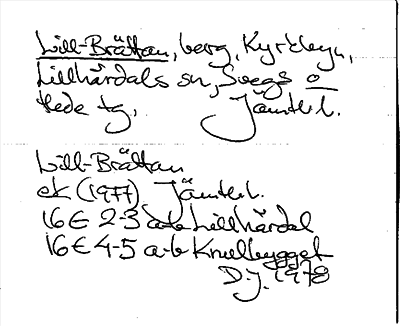 Lill-Brättan, berg, Kyrkbyn,
Lillhärdals sn, Svegs o
Hede tg, Jämtl l.
Lill-Brättan
ek (1977) Jämtl l.
16E 2-3 a-b Lillhärdal
16E 4-5 a-b Knulbygget
D.J. 1978